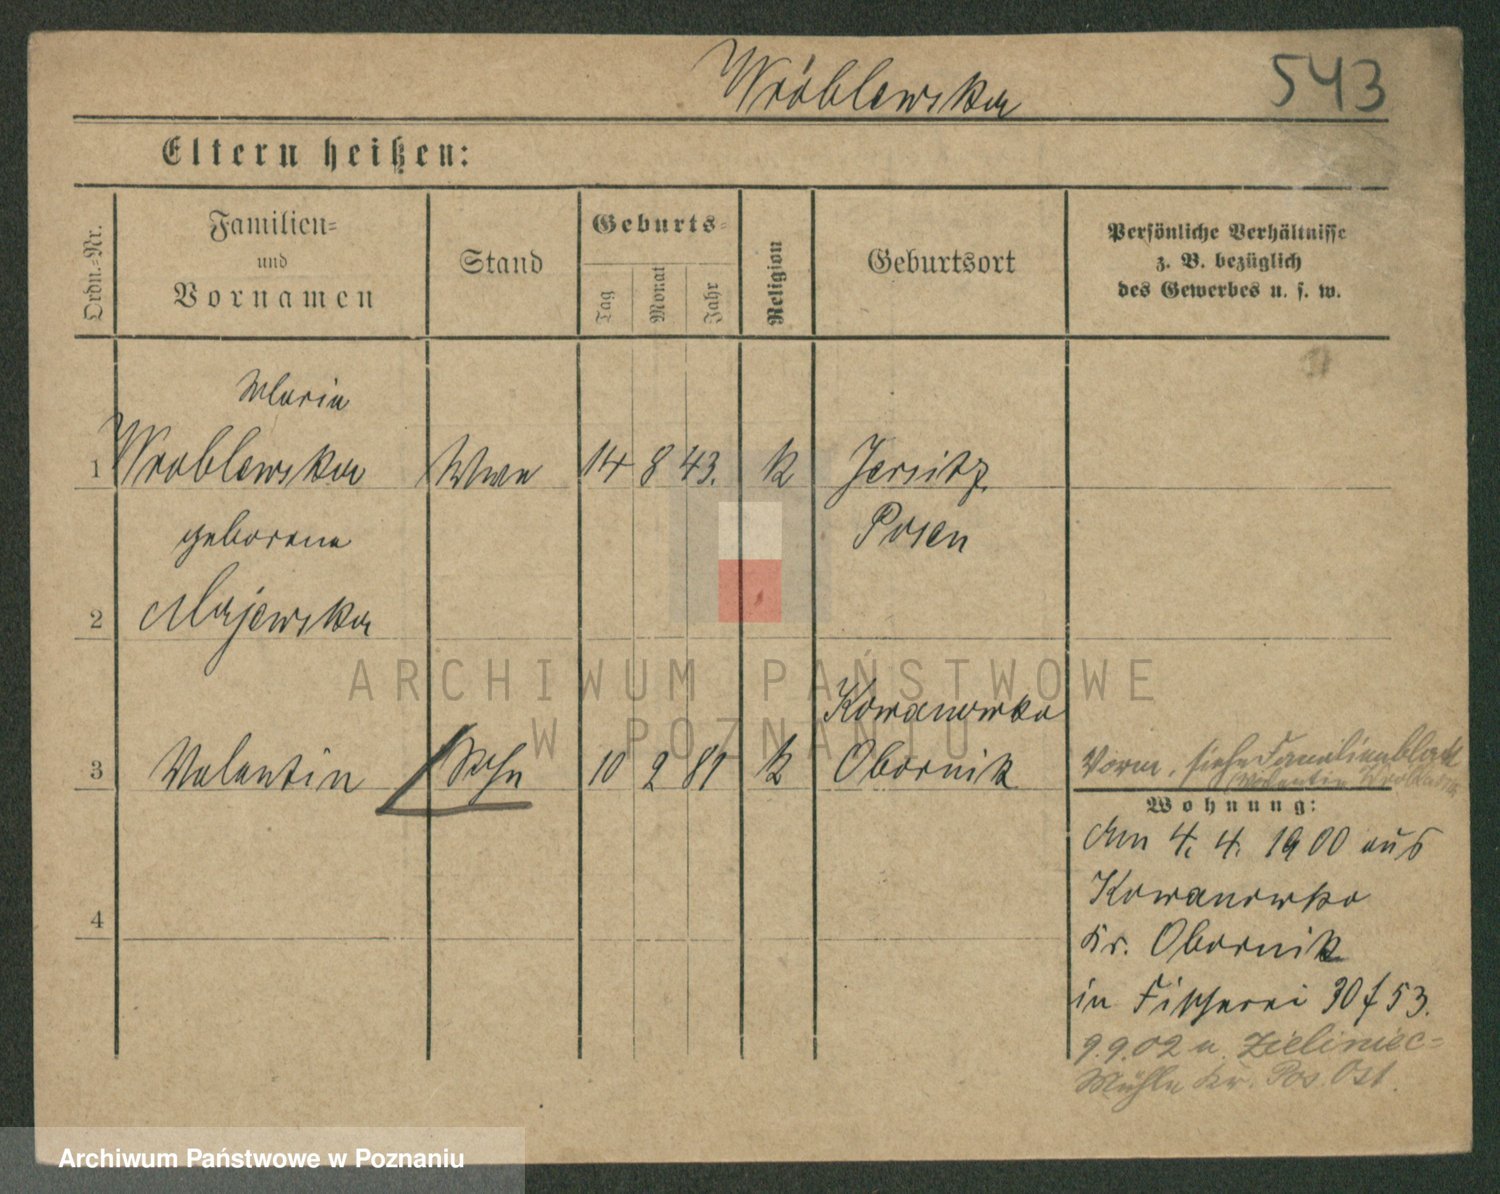 Wróblewska
543
Eltern heißen:
Ordn.-Nr.
Familien-
und
Vornamen
Stand
Geburts-
Tag
Monat
Jahr
Religion
Geburtsort
Persönliche Verhältnisse
z. B. bezüglich
des Gewerbes u. s. w.
Maria
1 Wroblewska Wwe 14 8 43. k Jersitz
geborene Posen
2 Majewska
Kowanowko
3 Valentin Sohn 10 2 81 k Obornik
Vorm. siehe Familienblatt
Valentin
Wohnung:
Am 4. 4. 1900 aus
Kowanowko
4
Kr. Obornik
in Fischerei 30 f 53.
9.9.02 n. Zieliniec-
Mühle Kr. Pos. Ost.
ARCHIWUM PAŃSTWOWE
W POZNANIU
Archiwum Państwowe w Poznaniu